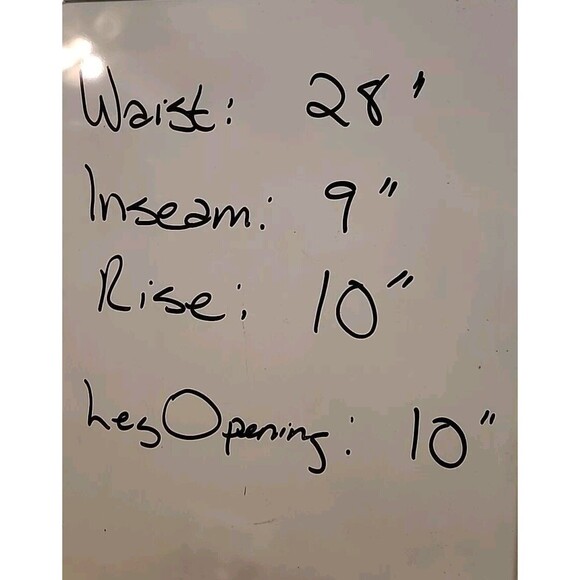 Waist: 28'
Inseam: 9"
Rise: 10"
Leg Opening: 10"